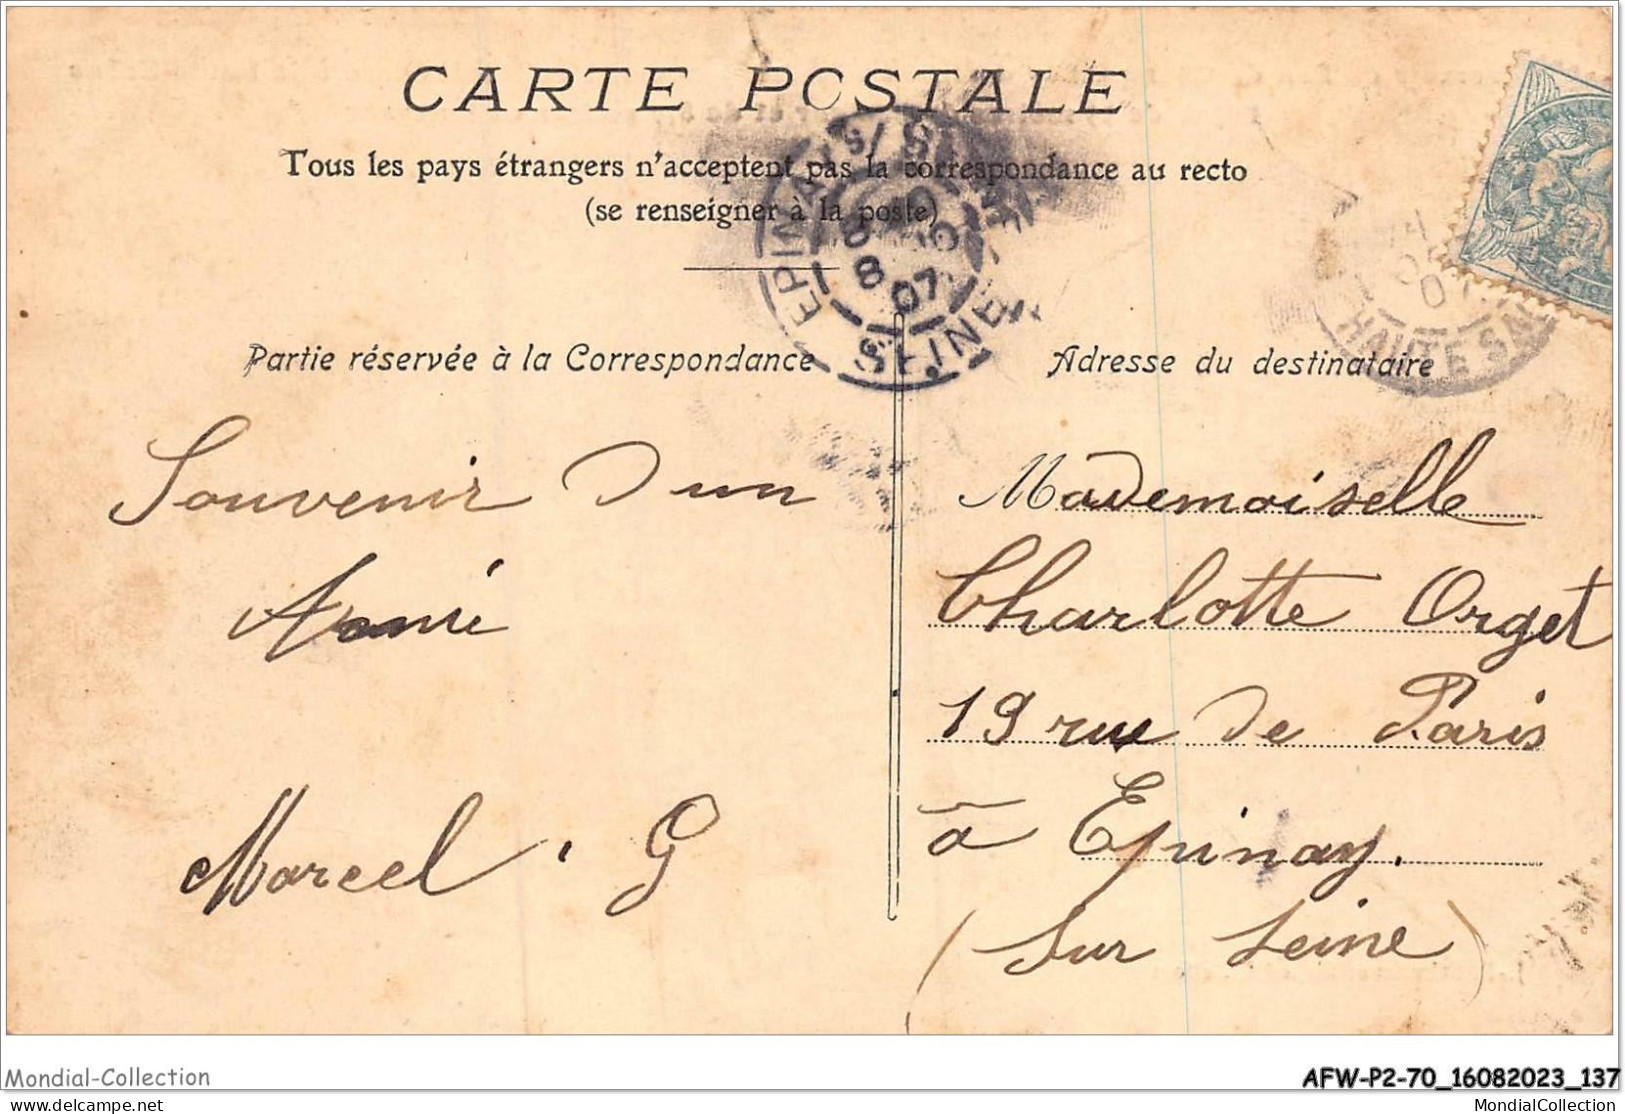 CARTE POSTALE
Tous les pays étrangers n'acceptent pas la correspondance au recto
(se renseigner à la poste)
EPINAY S/ SEINE
8 - 10
8
07
SEINE
HAUTE SAÔ
Partie réservée à la Correspondance
Adresse du destinataire
Souvenir d'un
Ami
Marcel. G
Mademoiselle
Charlotte Orget
19 rue de Paris
à Epinay.
(sur Seine)
Mondial-Collection
AFW-P2-70_16082023_137
delcampe.net
MondialCollection